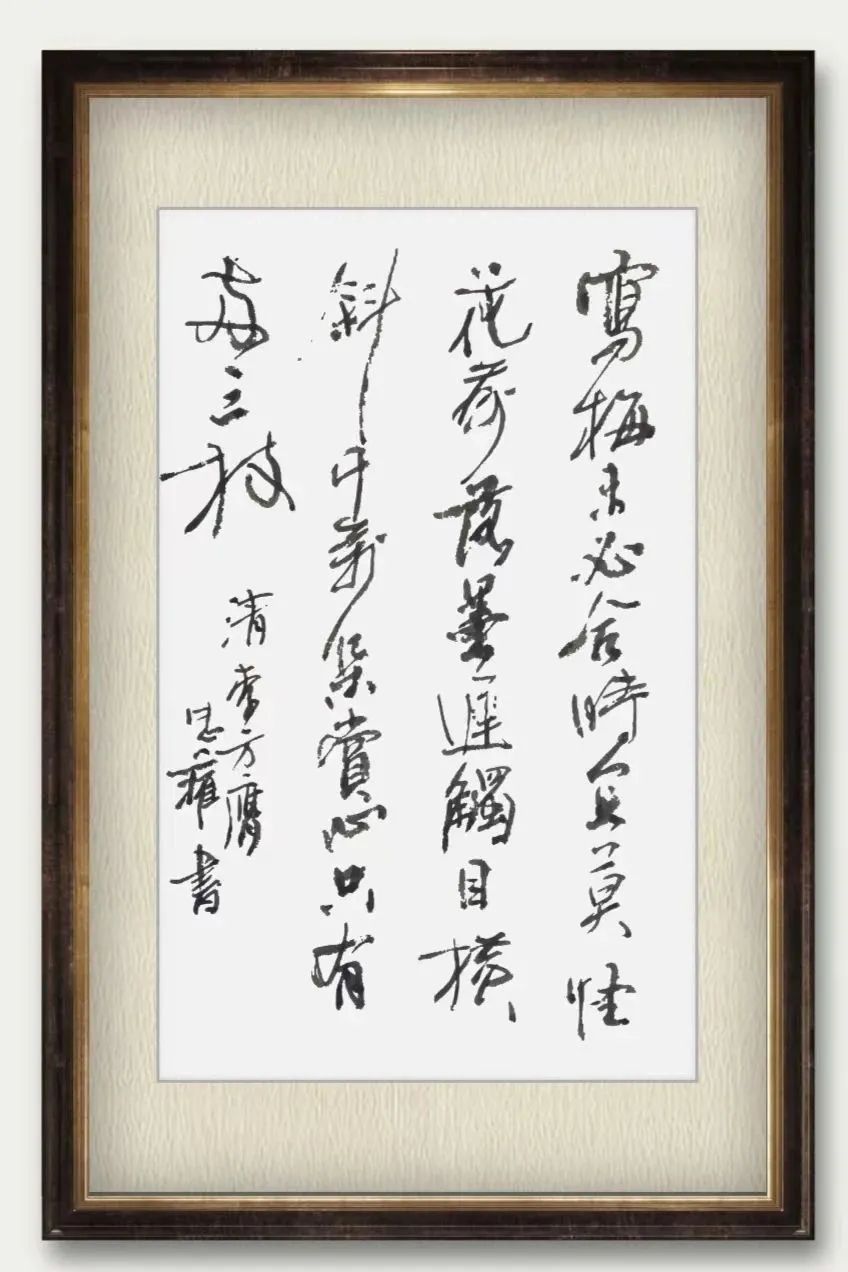 寫梅未必合時宜莫怪
花前落墨遲觸目橫
斜千萬朶賞心只有
兩三枝
清李方膺
書